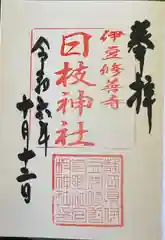 奉拝
伊豆修善寺
日枝神社
令和六年
十月十二日